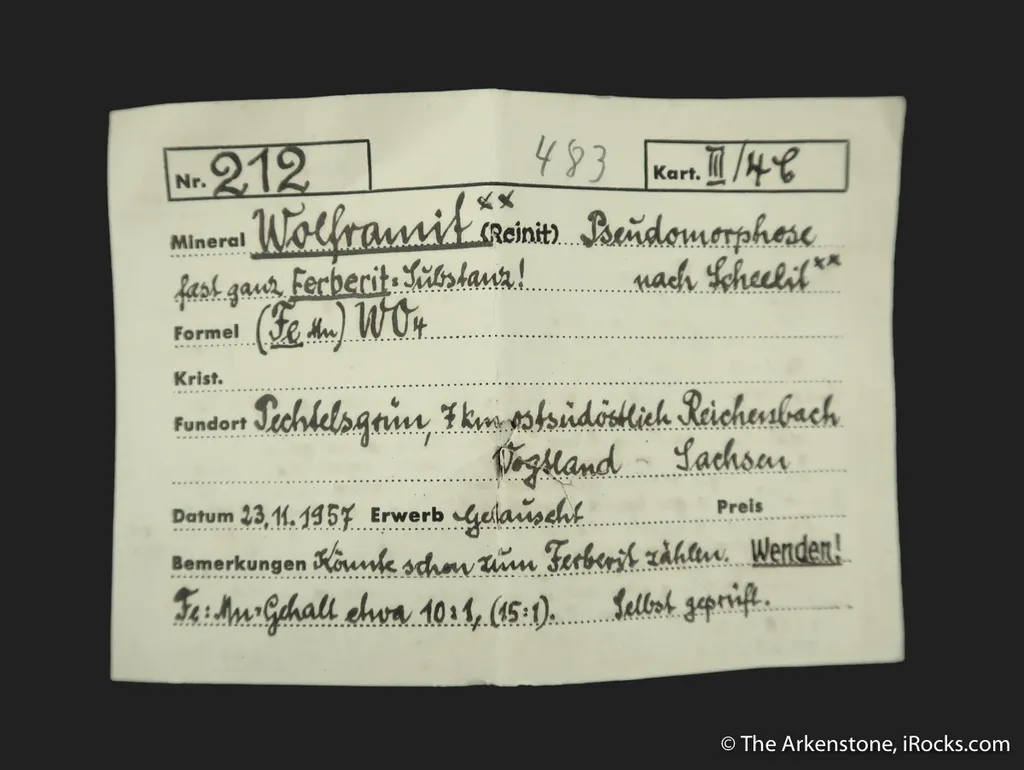 Nr. 212 483 Kart. III/4c
Mineral Wolframit xx (Reinit) Pseudomorphose
fast ganz Ferberit=Substanz! nach Scheelit xx
Formel (Fe Mn) WO4
Krist.
Fundort Pechtelsgrün, 7 km ostsüdöstlich Reichenbach
Vogtland - Sachsen
Datum 23.11.1957 Erwerb Getauscht Preis
Bemerkungen Könnte schon zum Ferberit zählen. Wenden!
Fe:Mn=Gehalt etwa 10:1, (15:1). Selbst geprüft.
© The Arkenstone, iRocks.com